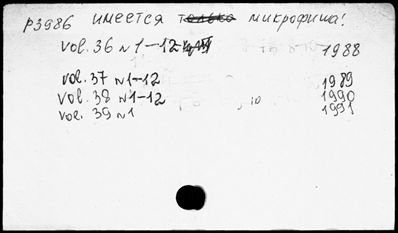 р3986 имеется только микрофиша!
vol. 36 N 1-12 1988
vol. 37 N 1-12 1989
vol. 38 N 1-12 , 10 1990
vol. 39 N 1 1991